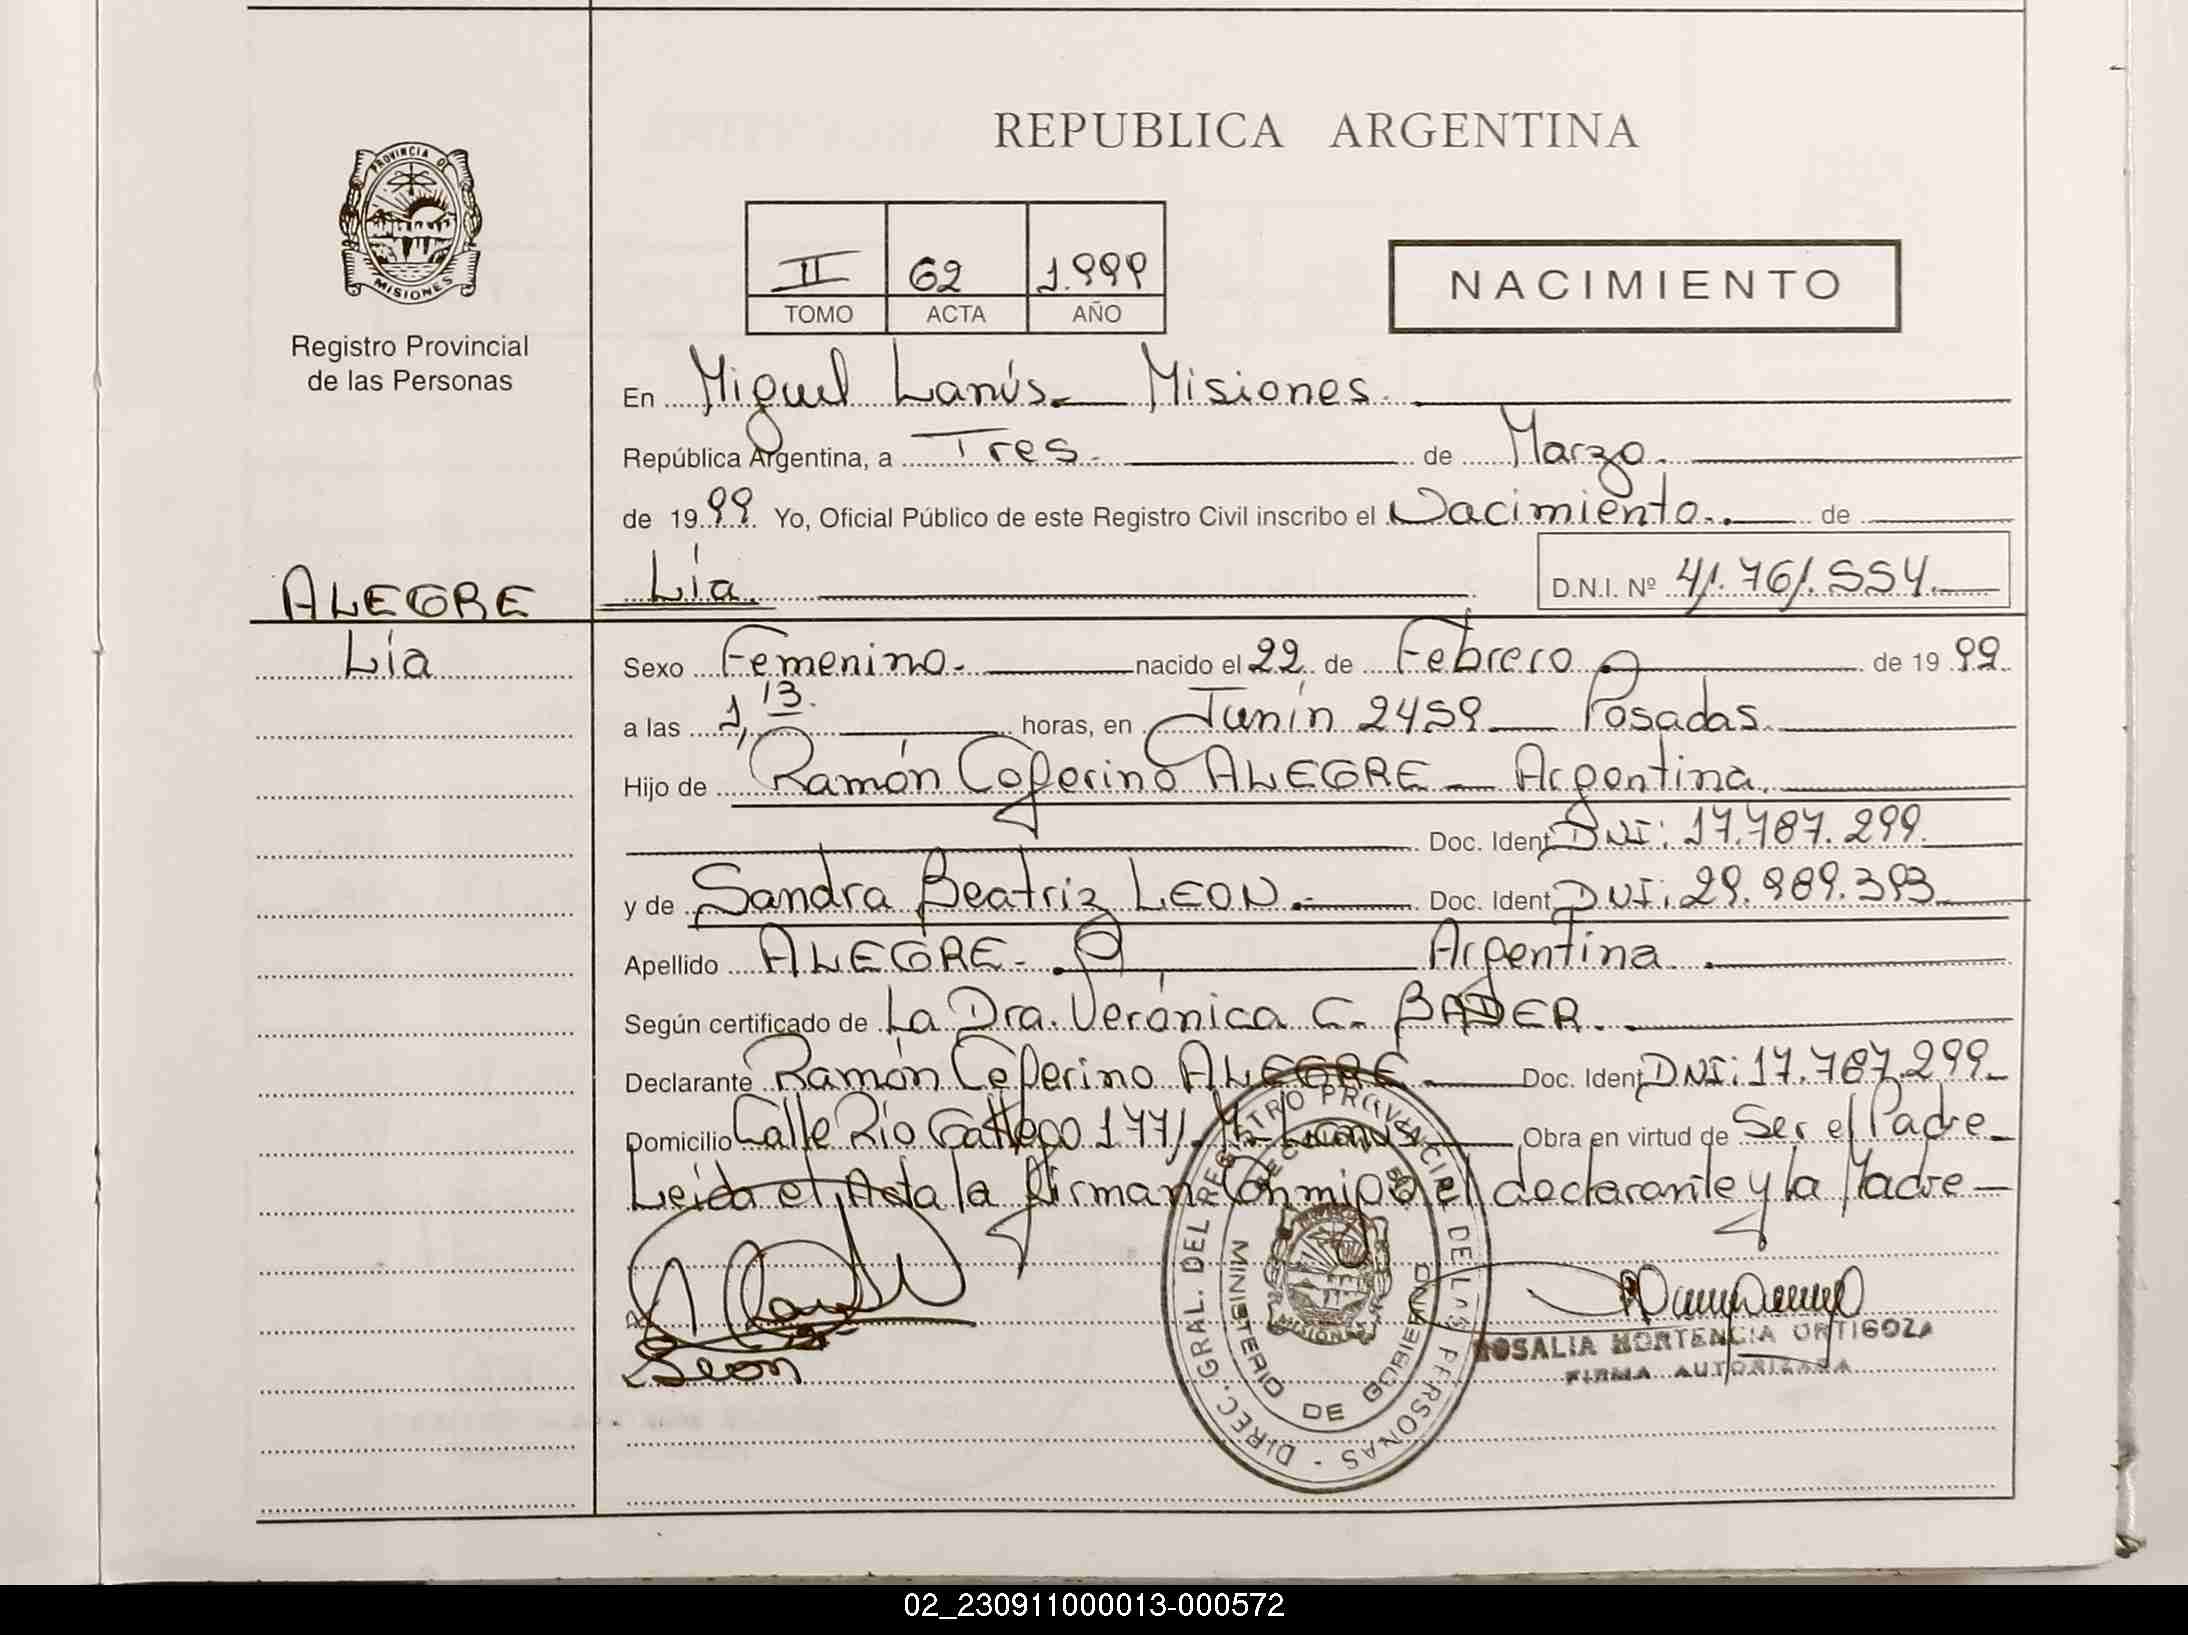 REPUBLICA ARGENTINA
PROVINCIA DE
MISIONES
Registro Provincial
de las Personas
II 62 1.999
TOMO ACTA AÑO
NACIMIENTO
En Miguel Lanús. Misiones.
República Argentina, a Tres. de Marzo.
de 1999 Yo, Oficial Público de este Registro Civil inscribo el Nacimiento. de
ALEGRE
Lía
Lía. D.N.I. Nº 41.761.554.
Sexo Femenino. nacido el 22 de Febrero de 1999
a las 1,13. horas, en Junín 2459 Posadas.
Hijo de Ramón Ceferino ALEGRE Argentina.
Doc. Ident. DNI: 17.787.299.
y de Sandra Beatriz LEON. Doc. Ident. DNI: 29.989.393
Apellido ALEGRE. Argentina.
Según certificado de La Dra. Verónica C. BADER.
Declarante Ramón Ceferino ALEGRE Doc. Ident. DNI: 17.787.299.
Domicilio Calle Río Gallego 1771. M. Lanús Obra en virtud de Ser el Padre
Leída el Acta la firman Conmigo el declarante y la Madre
Leon
ROSALIA HORTENCIA ORTIGOZA
FIRMA AUTORIZADA
DIREC. GRAL. DEL REGISTRO PROVINCIAL DE LAS PERSONAS
MINISTERIO DE GOBIERNO
MISIONES
02_230911000013-000572